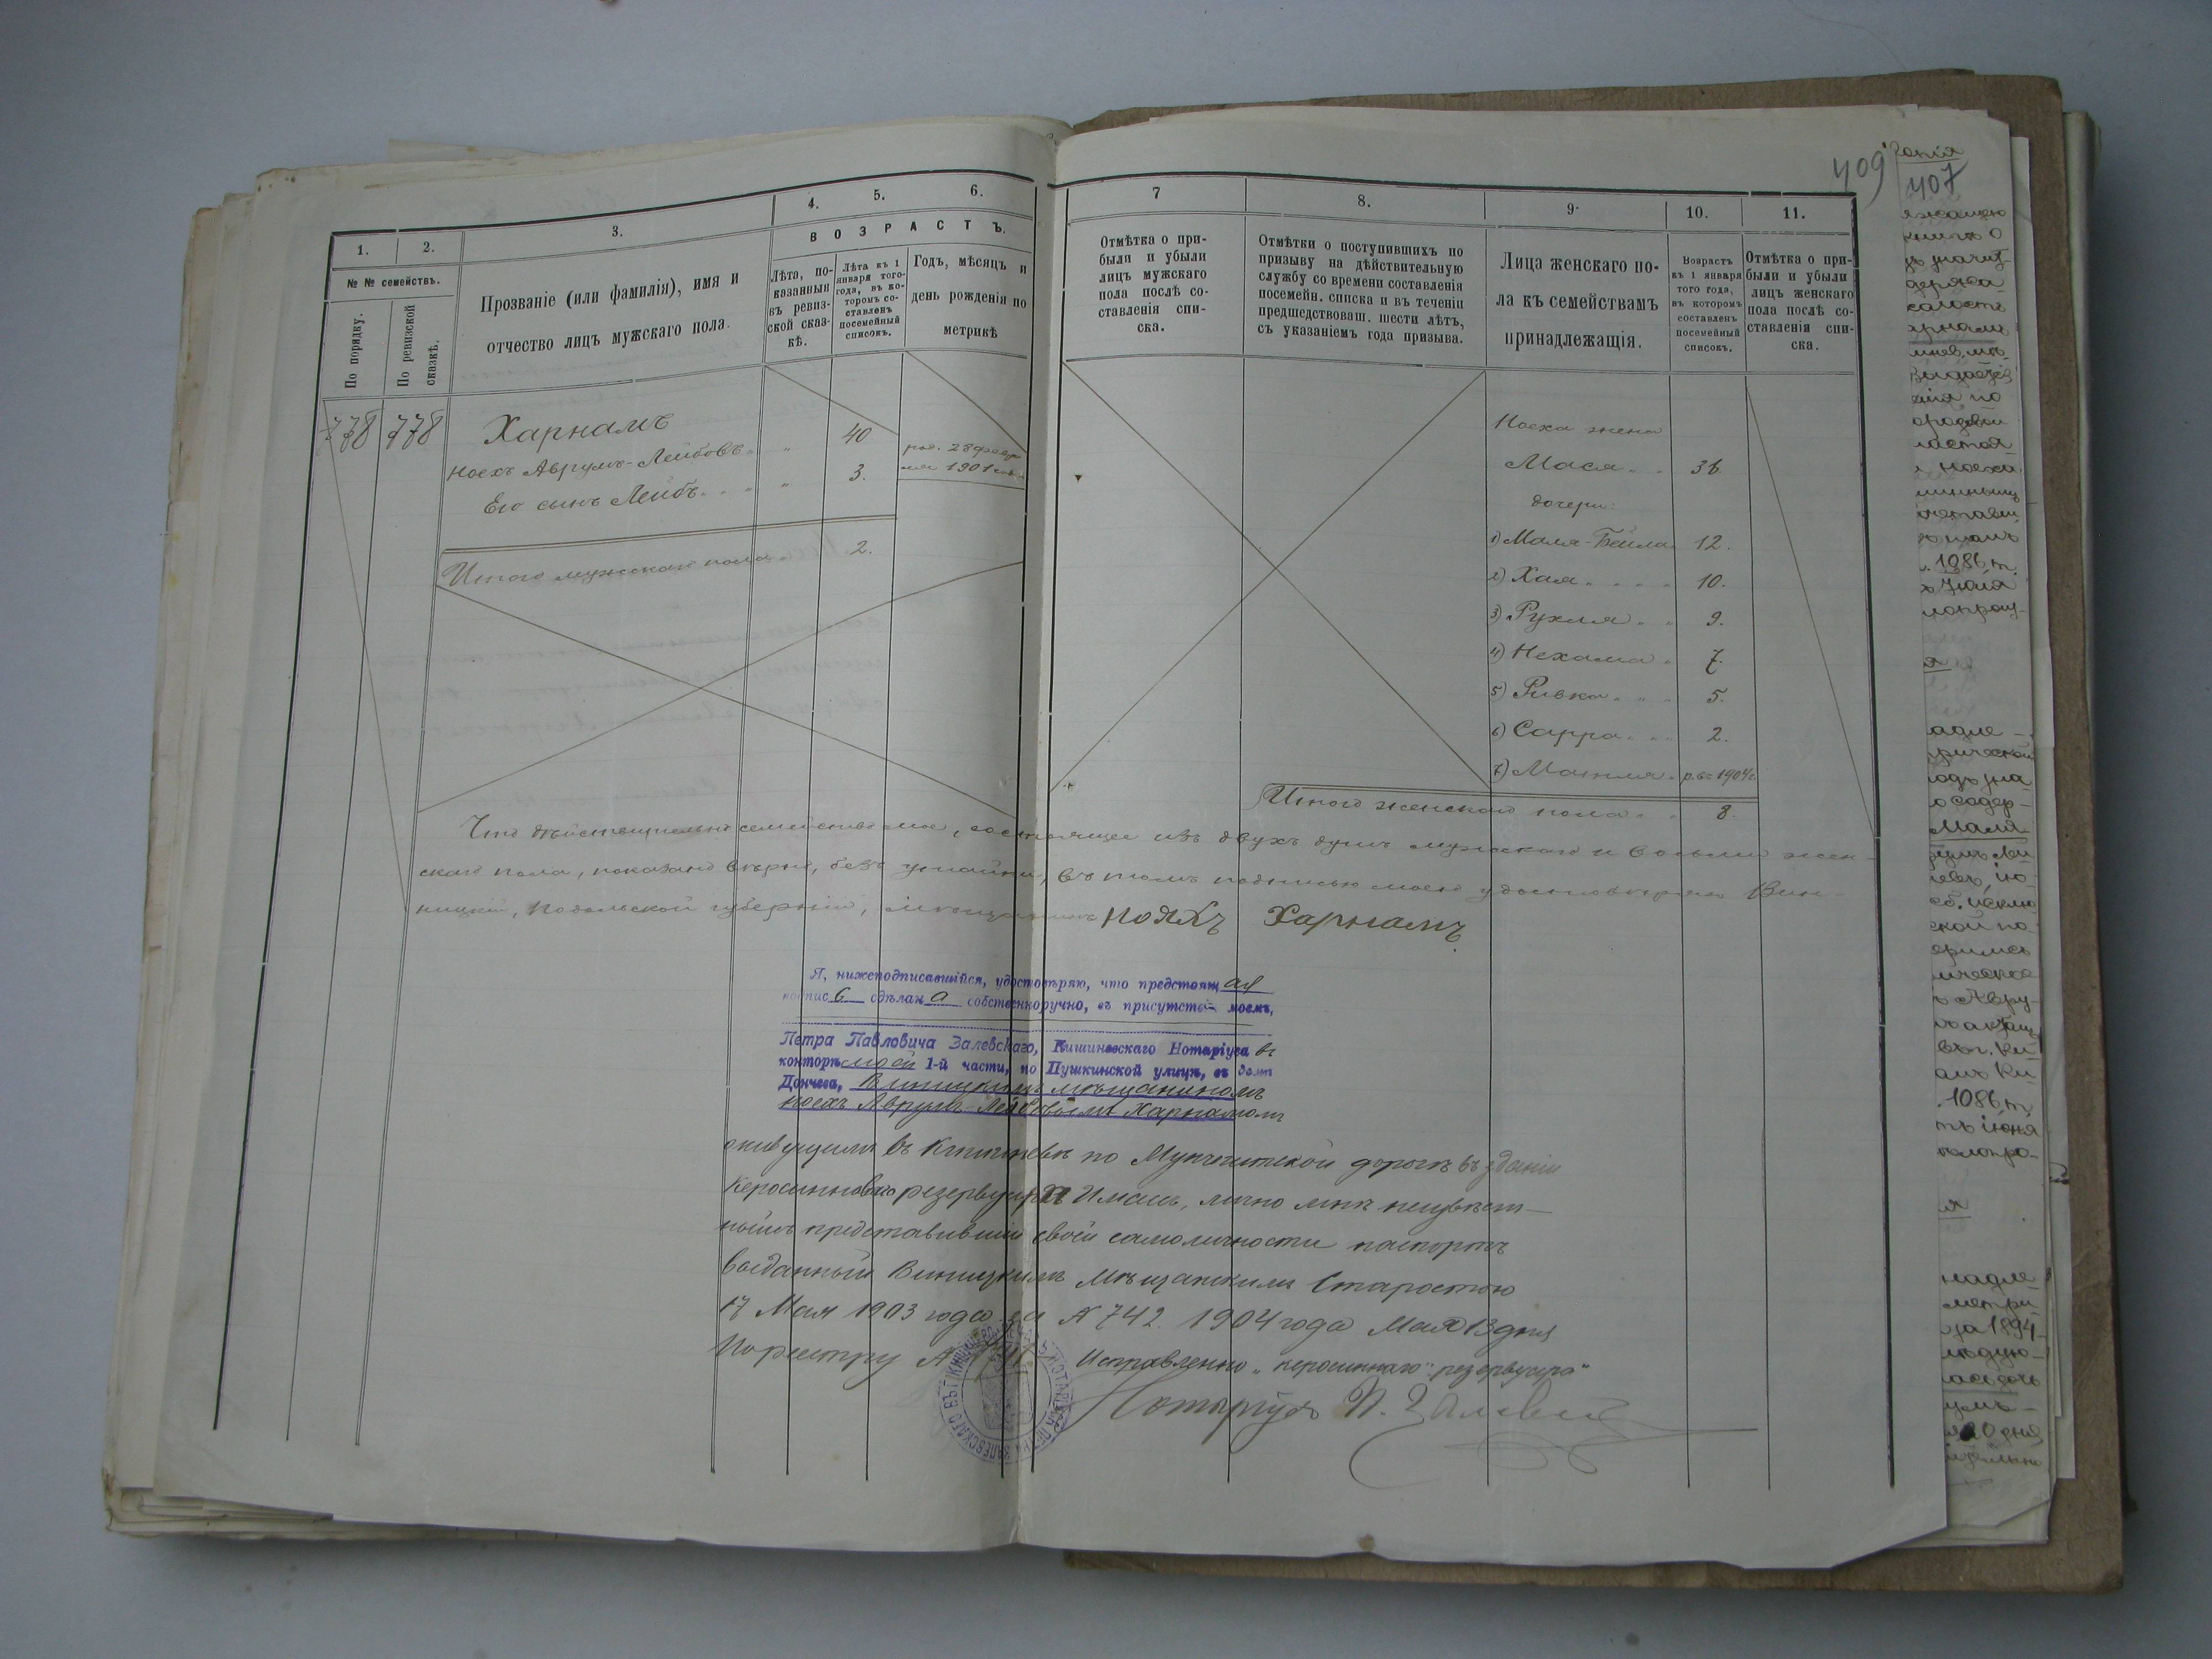 409
1.
2.
3.
4.
5.
6.
7
8.
9.
10.
11.
№ № семействъ.
По порядку.
По ревизской сказкѣ.
Прозваніе (или фамилія), имя и
отчество лицъ мужскаго пола.
ВОЗРАСТЪ.
Лѣта, по-
казанныя
въ ревиз-
ской сказ-
кѣ.
Лѣта къ 1
января того
года, въ ко-
торомъ со-
ставленъ
посемейный
списокъ.
Годъ, мѣсяцъ и
день рожденія по
метрикѣ
Отмѣтка о при-
были и убыли
лицъ мужскаго
пола послѣ со-
ставленія спи-
ска.
Отмѣтки о поступившихъ по
призыву на дѣйствительную
службу со времени составленія
посемейн. списка и въ теченіи
предшедствоваш. шести лѣтъ,
съ указаніемъ года призыва.
Лица женскаго по-
ла къ семействамъ
принадлежащія.
Возрастъ
къ 1 января
того года,
въ которомъ
составленъ
посемейный
списокъ.
Отмѣтка о при-
были и убыли
лицъ женскаго
пола послѣ со-
ставленія спи-
ска.
778 778 Харнамъ
Ноехъ Аврумъ-Лейбовъ 40
Его сынъ Лейбъ 3.
род. 28 февра
ля 1901 года
Итого мужскаго пола 2.
Ноеха жена
Мася 36
дочери:
1) Маля-Бейла 12.
2) Хая 10.
3) Рухля 9.
4) Нехама 7.
5) Ривка 5.
6) Сарра 2.
7) р. въ 1904 г.
Итого женскаго пола 8.
Что дѣйствительно семейство мое, состоящее изъ двухъ душъ мужскаго и восьми жен-
скаго пола, показано вѣрно, безъ утайки, въ томъ подписью моею удостовѣряю Вин-
ницкій, Подольской губерніи, мѣщанинъ Нояхъ Харнамъ
Я, нижеподписавшійся, удостовѣряю, что предстоящая
подпись сдѣлана собственноручно, въ присутств моемъ,
Петра Павловича Залевскаго, Кишиневскаго Нотаріуса въ
конторѣ моей 1-й части, по Пушкинской улицѣ, въ домѣ
Дончева, Винницкимъ мѣщаниномъ
Ноехъ Аврумъ-Лейбовымъ Харнамомъ
живущимъ въ Кишиневѣ по Мунчештской дорогѣ въ зданіи
Керосиннаго резервуара лично мнѣ неизвѣст-
нымъ представившій своей самоличности паспортъ
выданный Винницкимъ Мѣщанскимъ Старостою
17 Мая 1903 года за № 742. 1904 года Мая 13 дня
По реестру № Исправленно „керосиннаго" „резервуара"
Нотаріусъ П. Залевскій
407
1086 т.
1086 т
за 1894
20 дня